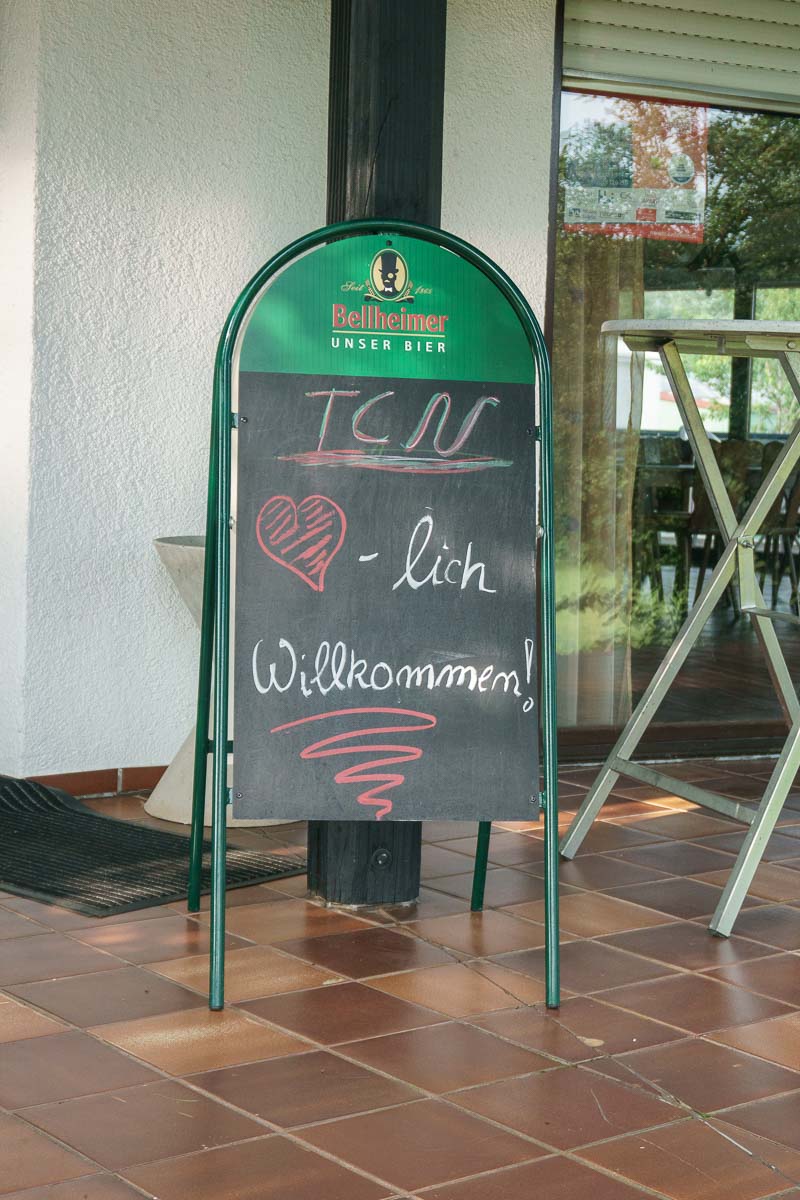 Seit 1865
Bellheimer
UNSER BIER
TCN
- lich
Willkommen!